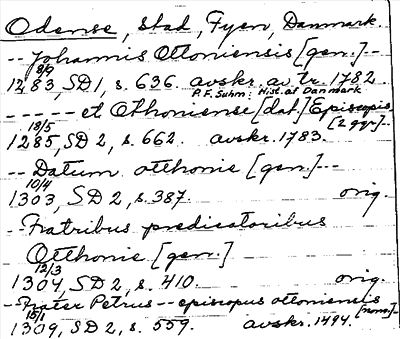 Odense, stad, Fyen, Danmark.
-- Johannis Ottoniensis [gen.] --
8/9
1283, SD 1, s. 636. avskr. av tr. 1782.
P.F. Suhm: Hist. af Danmark
----- et Othoniense [dat.] Episcopis
18/5 [2 ggr] --
1285, SD 2, s. 662. avskr. 1783.
-- Datum otthonie [gen.] --
10/4
1303, SD 2, s. 387. orig.
-- Fratribus predicatoribus
Otthonie [gen.]
12/3
1304, SD 2, s. 410. orig.
-- Frater Petrus -- episcopus ottoniensis
15/1 [nom.] --
1309, SD 2, s. 559. avskr. 1494.